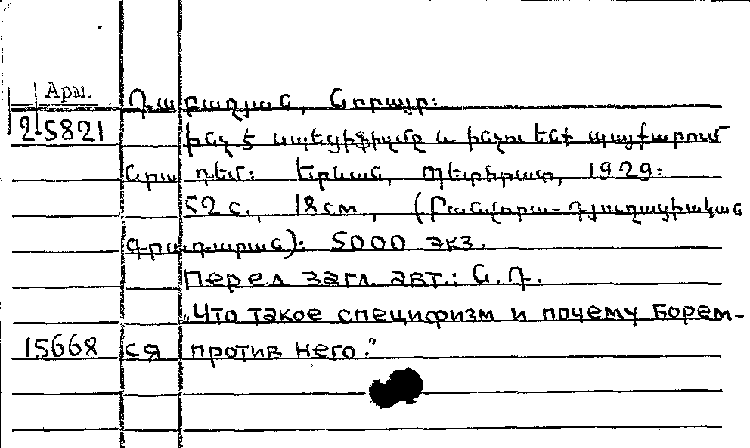 Арм.
Դաբաղյան, Նորայր:
2-5821
Ինչ է սպեցիֆիզմը և ինչու ենք պայքարում
նրա դեմ: Երևան, Պետհրատ, 1929:
52 с., 18 см., (Բանվորա-գյուղացիական
գրադարան): 5000 экз.
Перел загл. авт.: Ն. Դ.
„Что такое специфизм и почему Борем-
15668 ся против него."